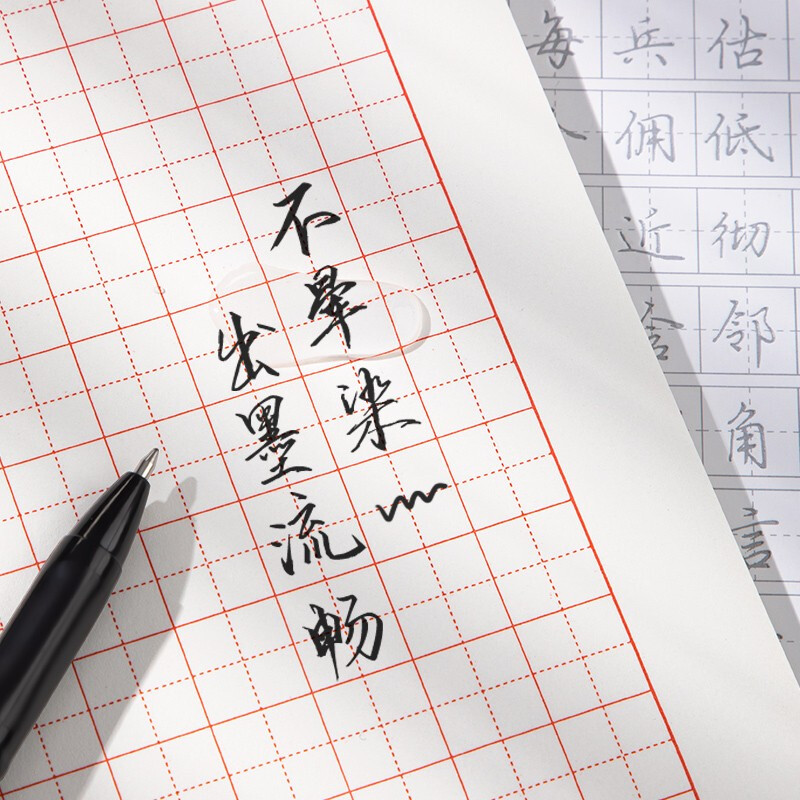 不晕染
出墨流畅
估低彻邻角言
兵佣近含
每